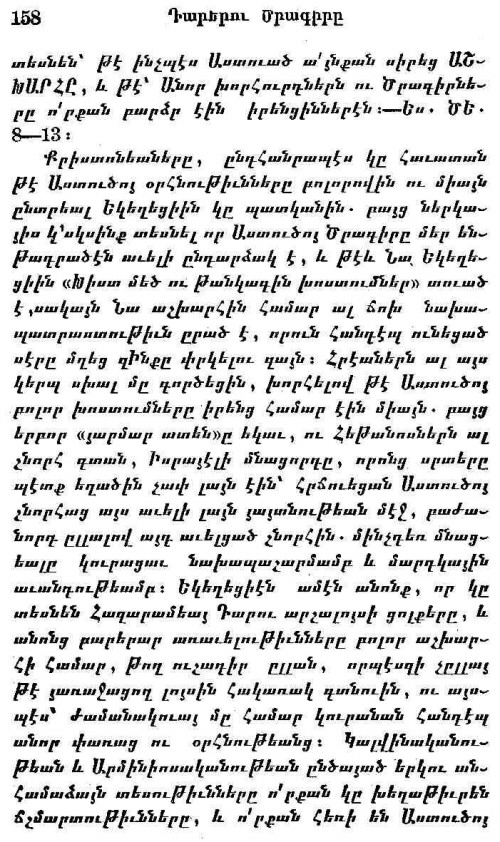 158 Դարերու Ծրագիրը
տեսնեն՝ թէ ինչպէս Աստուած ա՛յնքան սիրեց ԱՇ-
ԽԱՐՀԸ, և թէ՝ Անոր խորհուրդներն ու Ծրագիրնե-
րը ո՛րքան բարձր էին իրենցիններէն։—Ես. ԾԵ.
8—13։
Քրիստոնեաները, ընդհանրապէս կը հաւատան
թէ Աստուծոյ օրհնութիւնները բոլորովին ու միայն
ընտրեալ Եկեղեցիին կը պատկանին. բայց ներկա-
յիս կ՚սկսինք տեսնել որ Աստուծոյ Ծրագիրը մեր են-
թադրածէն աւելի ընդարձակ է, և թէև Նա Եկեղե-
ցիին «Խիստ մեծ ու թանկագին խոստումներ» տուած
է,սակայն Նա աշխարհին համար ալ ճոխ նախա-
պատրաստութիւն ըրած է, որուն հանդէպ ունեցած
սէրը մղեց զԻնքը փրկելու զայն։ Հրէաներն ալ այս
կերպ սխալ մը գործեցին, խորհելով թէ Աստուծոյ
բոլոր խոստումները իրենց համար էին միայն. բայց
երբոր «յարմար ատեն»ը եկաւ, ու Հեթանոսներն ալ
շնորհ գտան, Իսրայէլի մնացորդը, որոնց սրտերը
պէտք եղածին չափ լայն էին՝ հրճուեցան Աստուծոյ
շնորհաց այս աւելի լայն յայտնութեան մէջ, բաժա-
նորդ ըլլալով այդ աւելցած շնորհին. մինչդեռ մնաց-
եալը կուրացաւ նախապաշարմամբ և մարդկային
աւանդութեամբ։ Եկեղեցիէն ամէն անոնք, որ կը
տեսնեն Հազարամեայ Դարու արշալոյսի ցոլքերը, և
անոնց բարերար առաւելութիւնները բոլոր աշխար-
հի համար, թող ուշադիր ըլլան, որպէսզի չըլլայ
թէ յառաջացող լոյսին հակառակ գտնուին, ու այս-
պէս՝ ժամանակուայ մը համար կուրանան հանդէպ
անոր փառաց ու օրհնութեանց։ Կալվինականու-
թեան և Արմինիոսականութեան ընծայած երկու ան-
համաձայն տեսութիւնները ո՛րքան կը խեղաթիւրեն
ճշմարտութիւնները, և ո՛րքան հեռի են Աստուծոյ